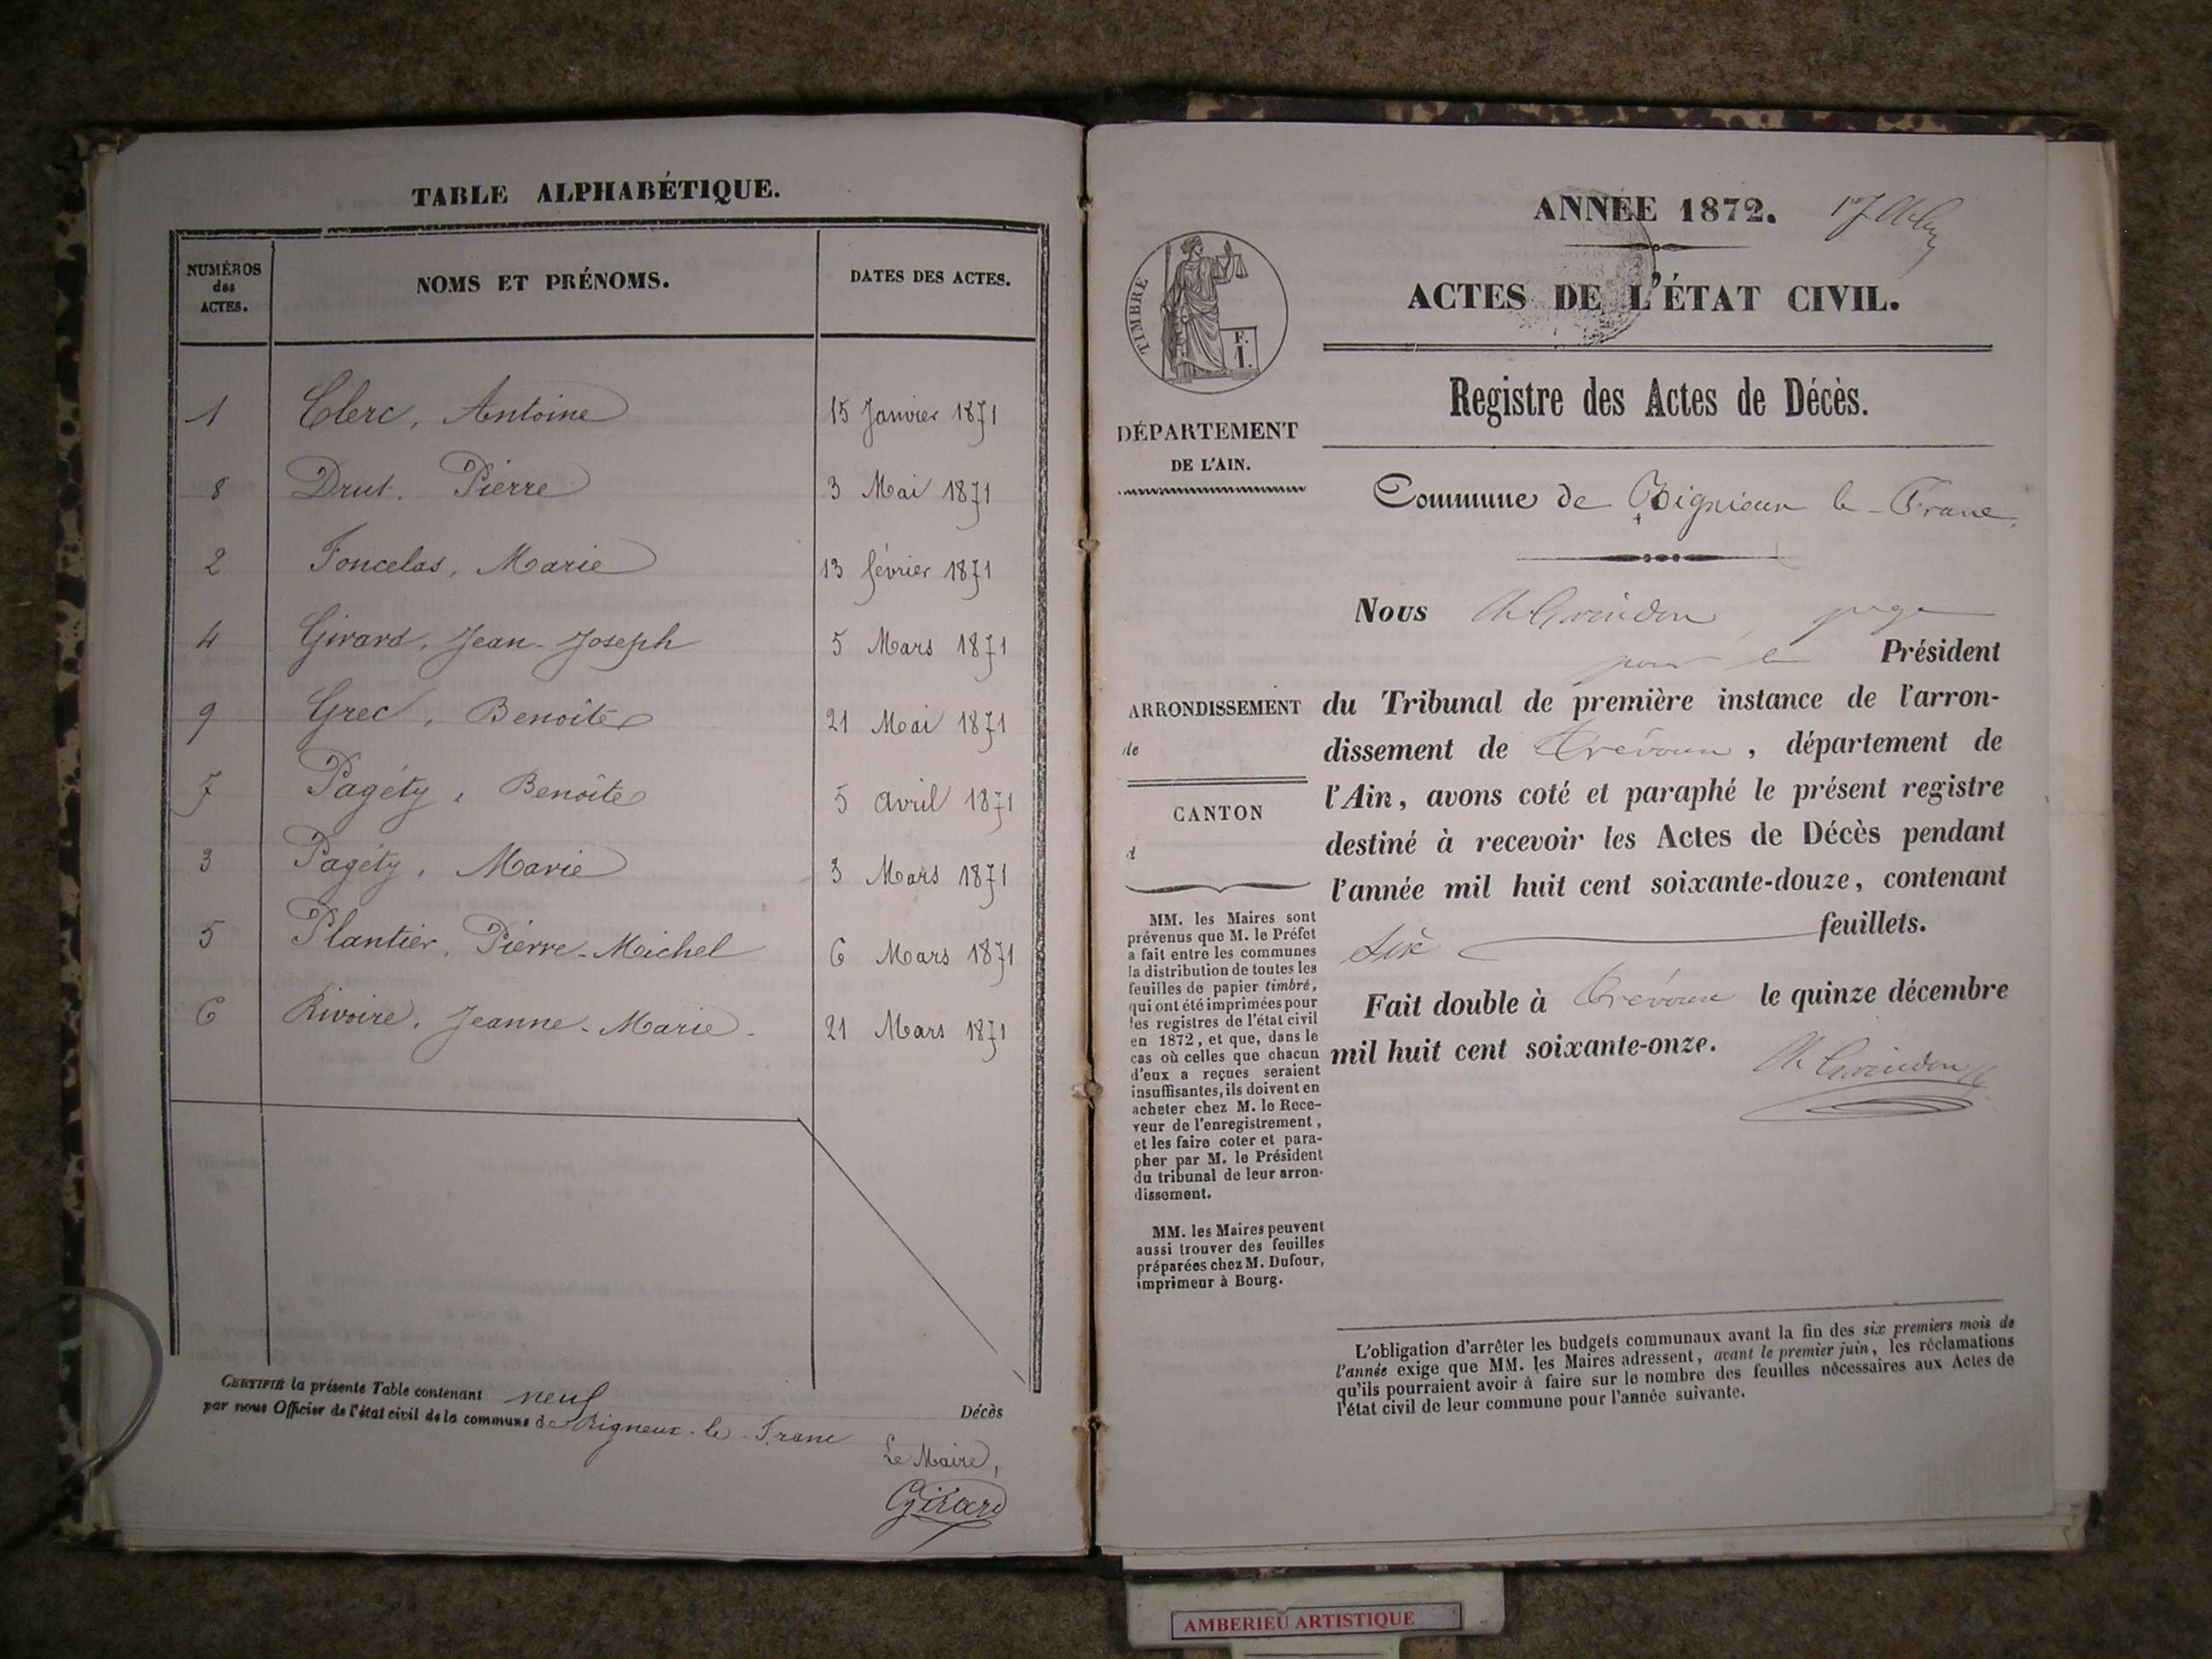 TABLE ALPHABÉTIQUE.
NUMÉROS
des
ACTES.
NOMS ET PRÉNOMS.
DATES DES ACTES.
1 Clerc, Antoine 15 Janvier 1871
8 Drut, Pierre 3 Mai 1871
2 Foncelas, Marie 13 février 1871
4 Girard, Jean-Joseph 5 Mars 1871
9 Grec, Benoîte 21 Mai 1871
7 Pagéty, Benoîte 5 avril 1871
3 Pagéty, Marie 3 Mars 1871
5 Plantier, Pierre-Michel 6 Mars 1871
6 Rivoire, Jeanne-Marie 21 Mars 1871
CERTIFIÉ la présente Table contenant neuf Décès
par nous Officier de l'état civil de la commune de Rigneux-le-Franc
Le Maire,
Girard
ANNÉE 1872.
ACTES DE L'ÉTAT CIVIL.
TIMBRE
F.
1.
Registre des Actes de Décès.
DÉPARTEMENT
DE L'AIN.
Commune de Rignieux le-Franc.
Nous juge
pour le Président
ARRONDISSEMENT
de
CANTON
d
du Tribunal de première instance de l'arron-
dissement de Trévoux, département de
l'Ain, avons coté et paraphé le présent registre
destiné à recevoir les Actes de Décès pendant
l'année mil huit cent soixante-douze, contenant
six feuillets.
Fait double à Trévoux le quinze décembre
mil huit cent soixante-onze.
MM. les Maires sont
prévenus que M. le Préfet
a fait entre les communes
la distribution de toutes les
feuilles de papier timbré,
qui ont été imprimées pour
les registres de l'état civil
en 1872, et que, dans le
cas où celles que chacun
d'eux a reçues seraient
insuffisantes, ils doivent en
acheter chez M. le Rece-
veur de l'enregistrement,
et les faire coter et para-
pher par M. le Président
du tribunal de leur arron-
dissement.
MM. les Maires peuvent
aussi trouver des feuilles
préparées chez M. Dufour,
imprimeur à Bourg.
L'obligation d'arrêter les budgets communaux avant la fin des six premiers mois de
l'année exige que MM. les Maires adressent, avant le premier juin, les réclamations
qu'ils pourraient avoir à faire sur le nombre des feuilles nécessaires aux Actes de
l'état civil de leur commune pour l'année suivante.
AMBERIEU ARTISTIQUE